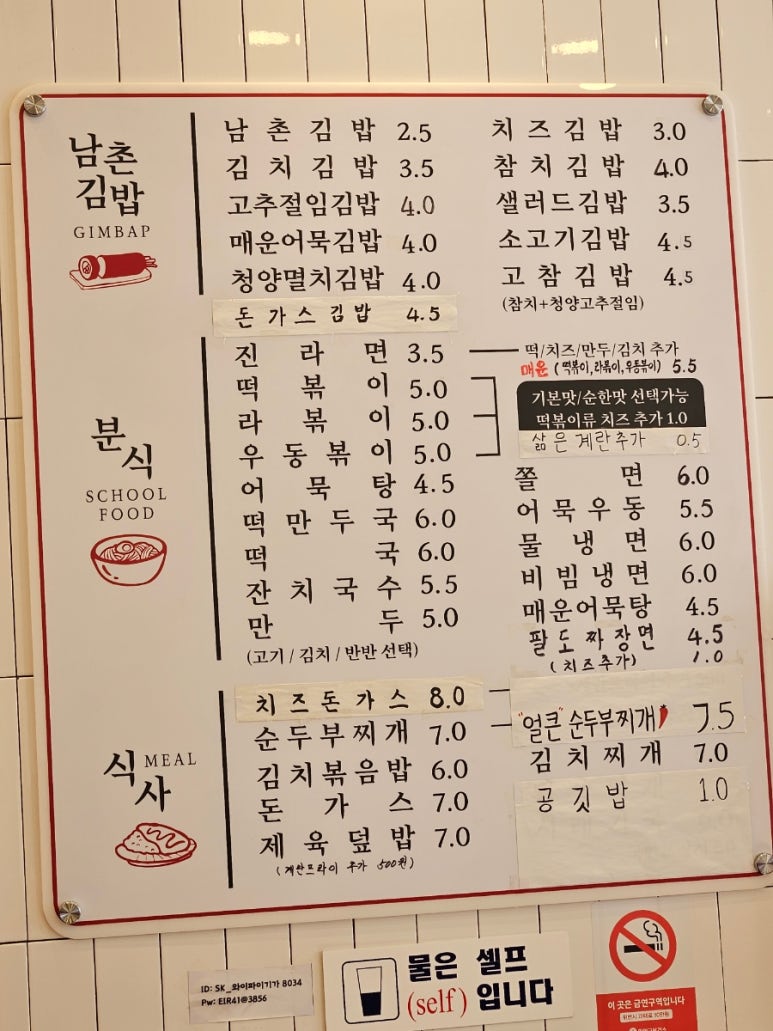 남촌
김밥
GIMBAP
남촌김밥 2.5
김치김밥 3.5
고추절임김밥 4.0
매운어묵김밥 4.0
청양멸치김밥 4.0
돈가스김밥 4.5
치즈김밥 3.0
참치김밥 4.0
샐러드김밥 3.5
소고기김밥 4.5
고참김밥 4.5
(참치+청양고추절임)
분식
SCHOOL
FOOD
진라면 3.5
떡볶이 5.0
라볶이 5.0
우동볶이 5.0
어묵탕 4.5
떡만두국 6.0
떡국 6.0
잔치국수 5.5
만두 5.0
(고기 / 김치 / 반반 선택)
떡/치즈/만두/김치 추가
매운 (떡볶이,라볶이,우동볶이) 5.5
기본맛/순한맛 선택가능
떡볶이류 치즈 추가 1.0
삶은 계란추가 0.5
쫄면 6.0
어묵우동 5.5
물냉면 6.0
비빔냉면 6.0
매운어묵탕 4.5
팔도짜장면 4.5
(치즈추가) 1.0
식사
MEAL
치즈돈가스 8.0
순두부찌개 7.0
김치볶음밥 6.0
돈가스 7.0
제육덮밥 7.0
(계란프라이 추가 500원)
"얼큰" 순두부찌개 7.5
김치찌개 7.0
공깃밥 1.0
ID: SK_와이파이기가 8034
Pw: EIR41@3856
물은 셀프
(self) 입니다
이 곳은 금연구역입니다